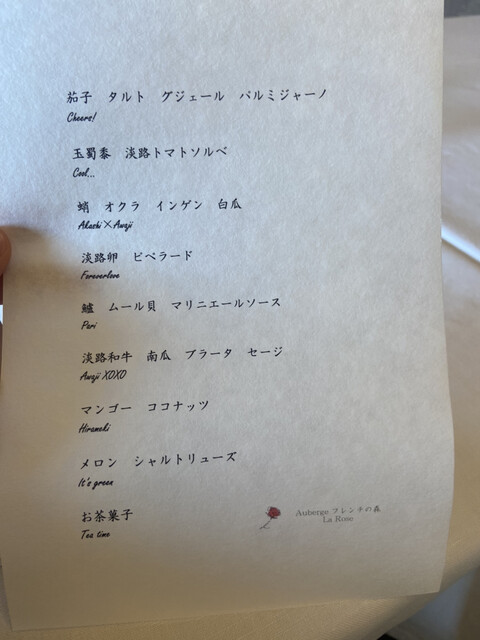 茄子　タルト　グジェール　パルミジャーノ
Cheers!
玉蜀黍　淡路トマトソルベ
Cool...
蛸　オクラ　インゲン　白瓜
Akashi×Awaji
淡路卵　ピペラード
Foreverlove
鱸　ムール貝　マリニエールソース
Pari
淡路和牛　南瓜　ブラータ　セージ
Awaji XOXO
マンゴー　ココナッツ
Hirameki
メロン　シャルトリューズ
It's green
お茶菓子
Tea time
Auberge フレンチの森
La Rose